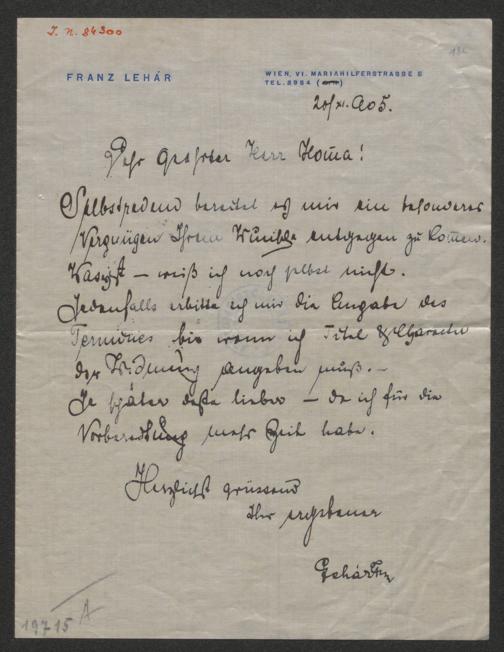 J. N. 84300
FRANZ LEHÁR
WIEN, VI. MARIAHILFERSTRASSE 5
TEL. 8984
20/XI. 905.
Sehr geehrter Herr Homa!
Selbstredend bereitet es mir ein besonderes
Vergnügen Ihrem Wunsche entgegen zu komen.
Was – weiß ich noch selbst nicht.
Jedenfalls erbitte ich mir die Angabe des
Termines bis wann ich Titel & Charakter
der Widmung angeben muß. –
Je später desto lieber – da ich für die
Vorbereitung mehr Zeit habe.
Herzlichst grüssend
Ihr ergebener
Lehár
19715 A